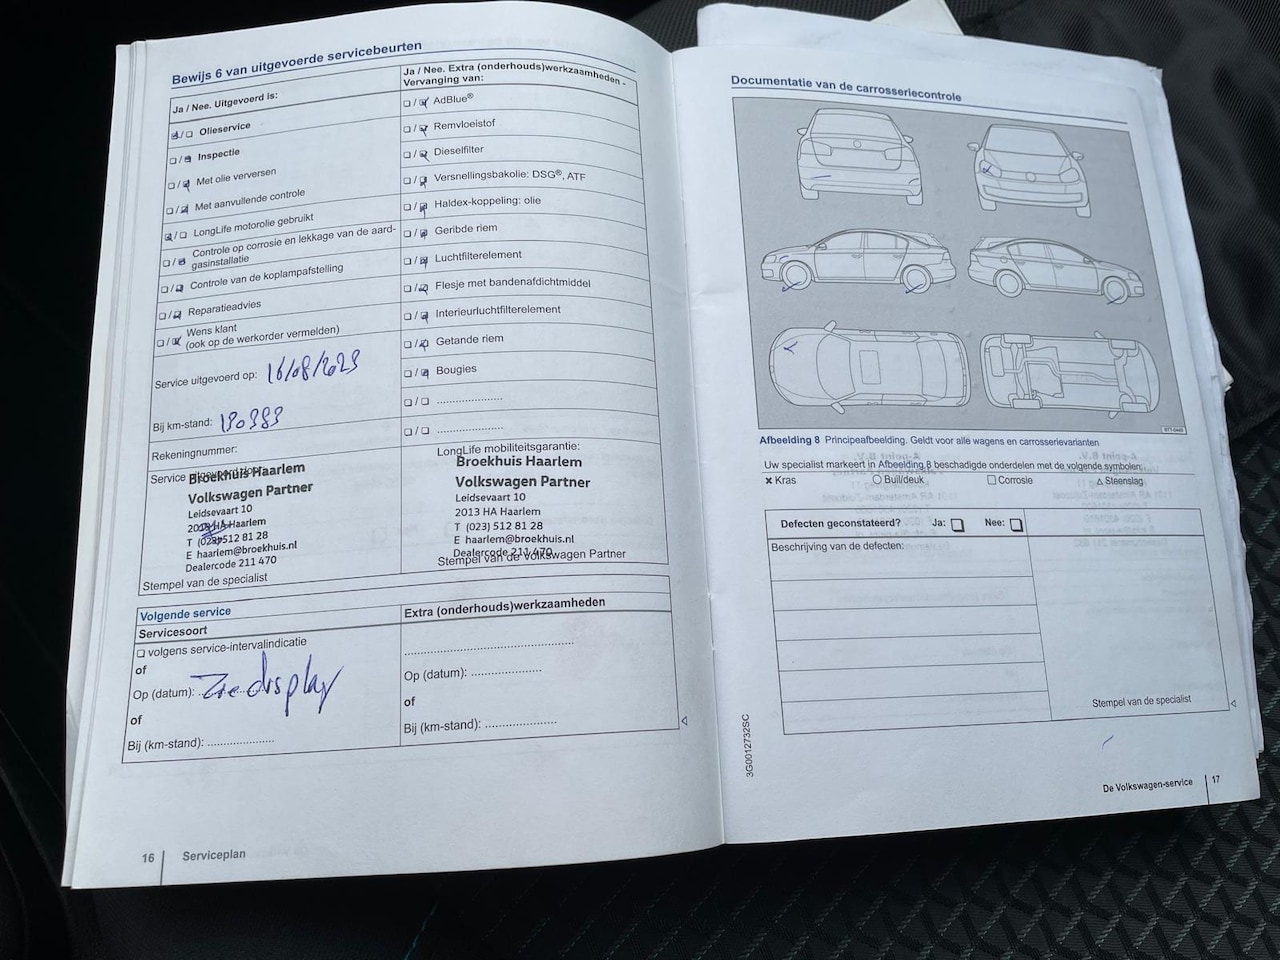 Bewijs 6 van uitgevoerde servicebeurten
Ja / Nee. Uitgevoerd is:
Olieservice
Inspectie
Met olie verversen
Met aanvullende controle
LongLife motorolie gebruikt
Controle op corrosie en lekkage van de aard-
gasinstallatie
Controle van de koplampafstelling
Reparatieadvies
Wens klant
(ook op de werkorder vermelden)
Service uitgevoerd op: 16/08/2023
Bij km-stand: 130383
Rekeningnummer:
Service uitgevoerd door:
Broekhuis Haarlem
Volkswagen Partner
Leidsevaart 10
2013 HA Haarlem
T (023) 512 81 28
E haarlem@broekhuis.nl
Dealercode 211 470
Stempel van de specialist
Ja / Nee. Extra (onderhouds)werkzaamheden -
Vervanging van:
AdBlue®
Remvloeistof
Dieselfilter
Versnellingsbakolie: DSG®, ATF
Haldex-koppeling: olie
Geribde riem
Luchtfilterelement
Flesje met bandenafdichtmiddel
Interieurluchtfilterelement
Getande riem
Bougies
LongLife mobiliteitsgarantie:
Broekhuis Haarlem
Volkswagen Partner
Leidsevaart 10
2013 HA Haarlem
T (023) 512 81 28
E haarlem@broekhuis.nl
Dealercode 211 470
Stempel van de Volkswagen Partner
Volgende service
Servicesoort
volgens service-intervalindicatie
of
Op (datum): Zie display
of
Bij (km-stand):
Extra (onderhouds)werkzaamheden
Op (datum):
of
Bij (km-stand):
16 Serviceplan
Documentatie van de carrosseriecontrole
Afbeelding 8 Principeafbeelding. Geldt voor alle wagens en carrosserievarianten
Uw specialist markeert in Afbeelding 8 beschadigde onderdelen met de volgende symbolen:
Kras Buil/deuk Corrosie Steenslag
Defecten geconstateerd? Ja: Nee:
Beschrijving van de defecten:
Stempel van de specialist
3G0012732SC
De Volkswagen-service 17